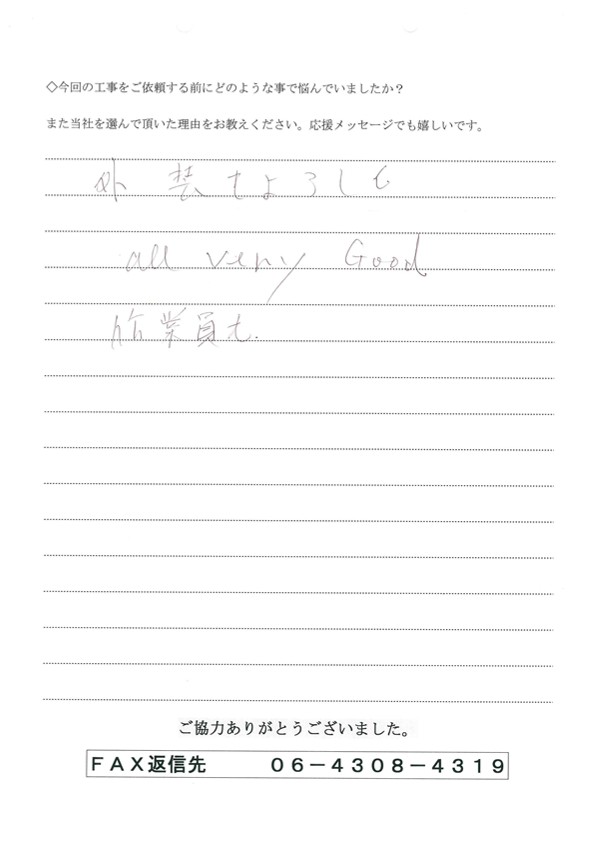 ◇今回の工事をご依頼する前にどのような事で悩んでいましたか？
また当社を選んで頂いた理由をお教えください。応援メッセージでも嬉しいです。
外装もよろしも
all very Good
作業員も.
ご協力ありがとうございました。
ＦＡＸ返信先　　０６－４３０８－４３１９